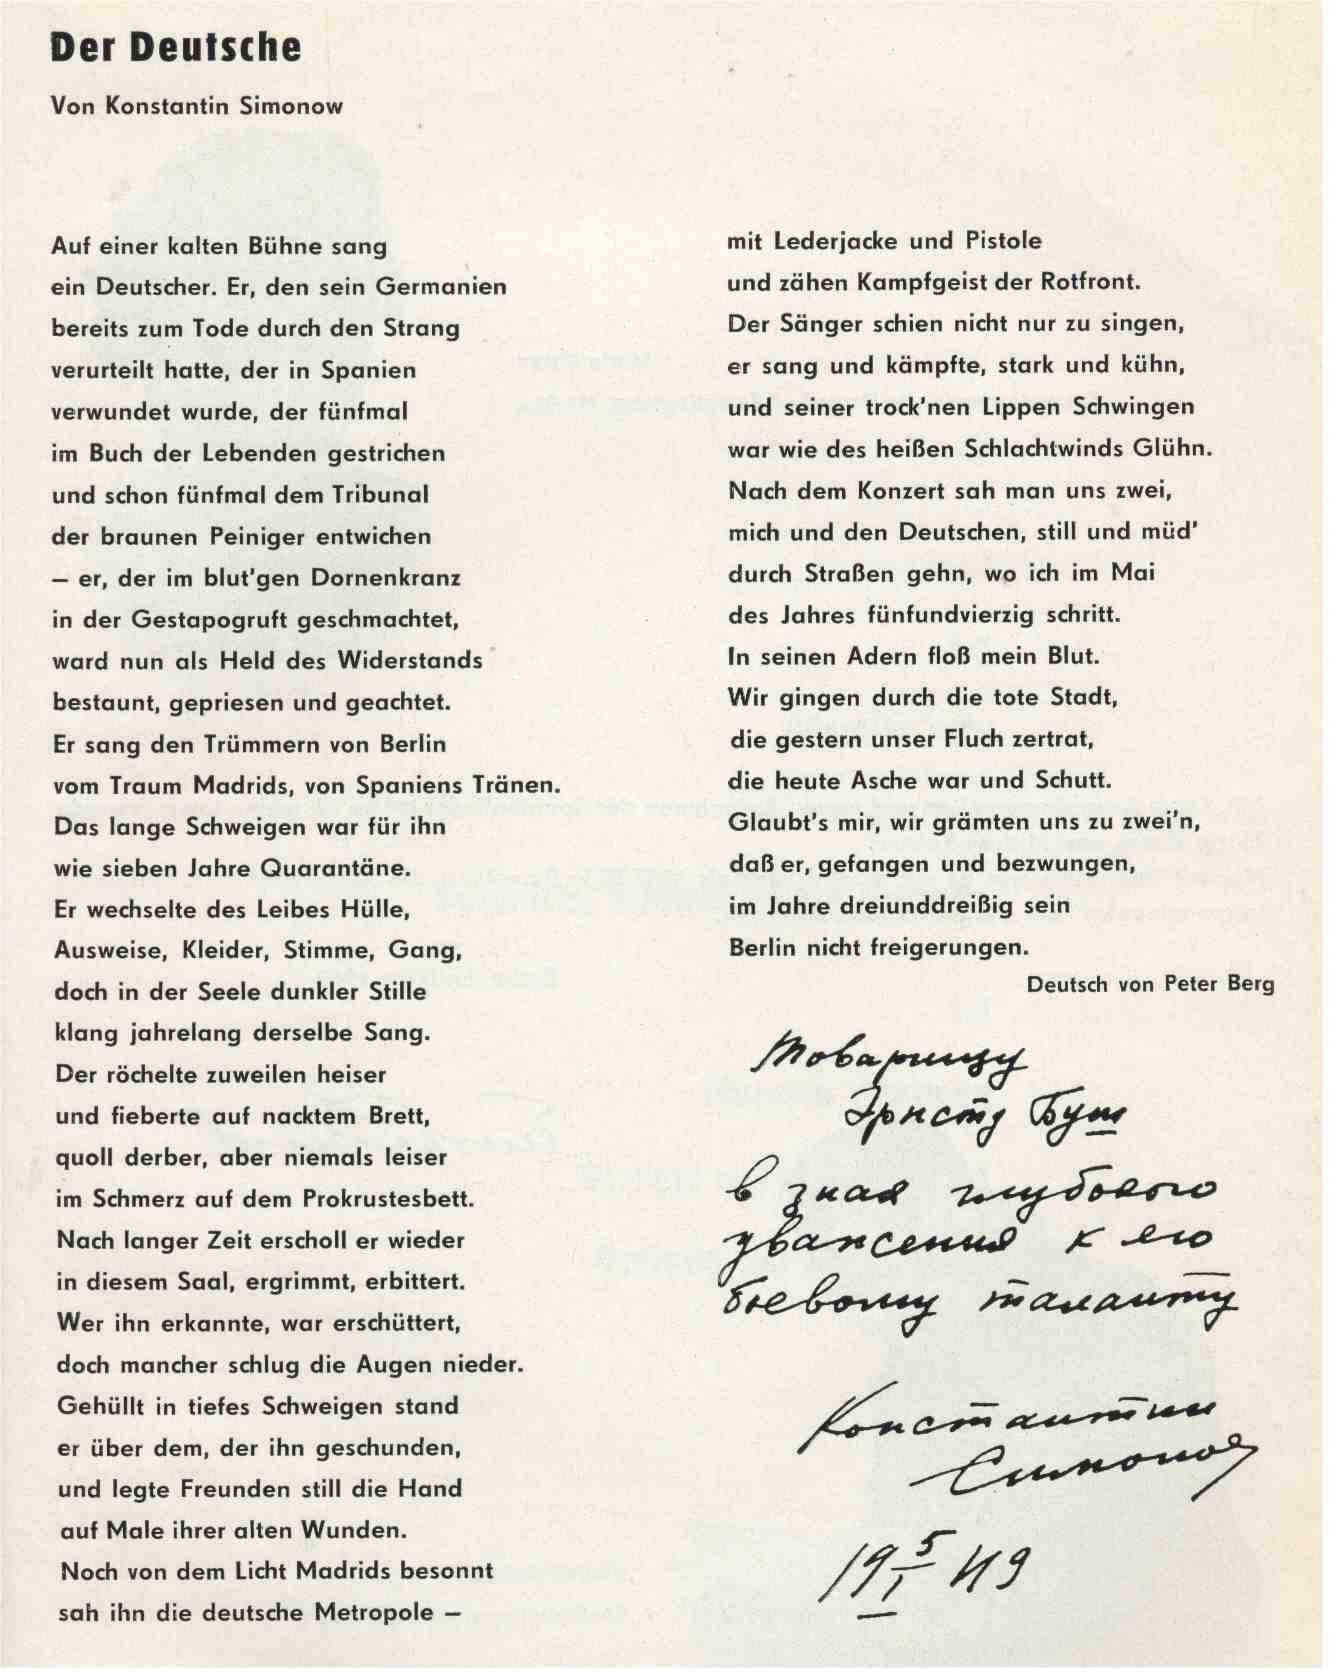 Der Deutsche
Von Konstantin Simonow
Auf einer kalten Bühne sang
ein Deutscher. Er, den sein Germanien
bereits zum Tode durch den Strang
verurteilt hatte, der in Spanien
verwundet wurde, der fünfmal
im Buch der Lebenden gestrichen
und schon fünfmal dem Tribunal
der braunen Peiniger entwichen
— er, der im blut'gen Dornenkranz
in der Gestapogruft geschmachtet,
ward nun als Held des Widerstands
bestaunt, gepriesen und geachtet.
Er sang den Trümmern von Berlin
vom Traum Madrids, von Spaniens Tränen.
Das lange Schweigen war für ihn
wie sieben Jahre Quarantäne.
Er wechselte des Leibes Hülle,
Ausweise, Kleider, Stimme, Gang,
doch in der Seele dunkler Stille
klang jahrelang derselbe Sang.
Der röchelte zuweilen heiser
und fieberte auf nacktem Brett,
quoll derber, aber niemals leiser
im Schmerz auf dem Prokrustesbett.
Nach langer Zeit erscholl er wieder
in diesem Saal, ergrimmt, erbittert.
Wer ihn erkannte, war erschüttert,
doch mancher schlug die Augen nieder.
Gehüllt in tiefes Schweigen stand
er über dem, der ihn geschunden,
und legte Freunden still die Hand
auf Male ihrer alten Wunden.
Noch von dem Licht Madrids besonnt
sah ihn die deutsche Metropole —
mit Lederjacke und Pistole
und zähen Kampfgeist der Rotfront.
Der Sänger schien nicht nur zu singen,
er sang und kämpfte, stark und kühn,
und seiner trock'nen Lippen Schwingen
war wie des heißen Schlachtwinds Glühn.
Nach dem Konzert sah man uns zwei,
mich und den Deutschen, still und müd'
durch Straßen gehn, wo ich im Mai
des Jahres fünfundvierzig schritt.
In seinen Adern floß mein Blut.
Wir gingen durch die tote Stadt,
die gestern unser Fluch zertrat,
die heute Asche war und Schutt.
Glaubt's mir, wir grämten uns zu zwei'n,
daß er, gefangen und bezwungen,
im Jahre dreiunddreißig sein
Berlin nicht freigerungen.
Deutsch von Peter Berg
Товарищу
Эрнсту Буш
в знак глубокого
уважения к его
боевому таланту
Константин
Симонов
19 5/I 49